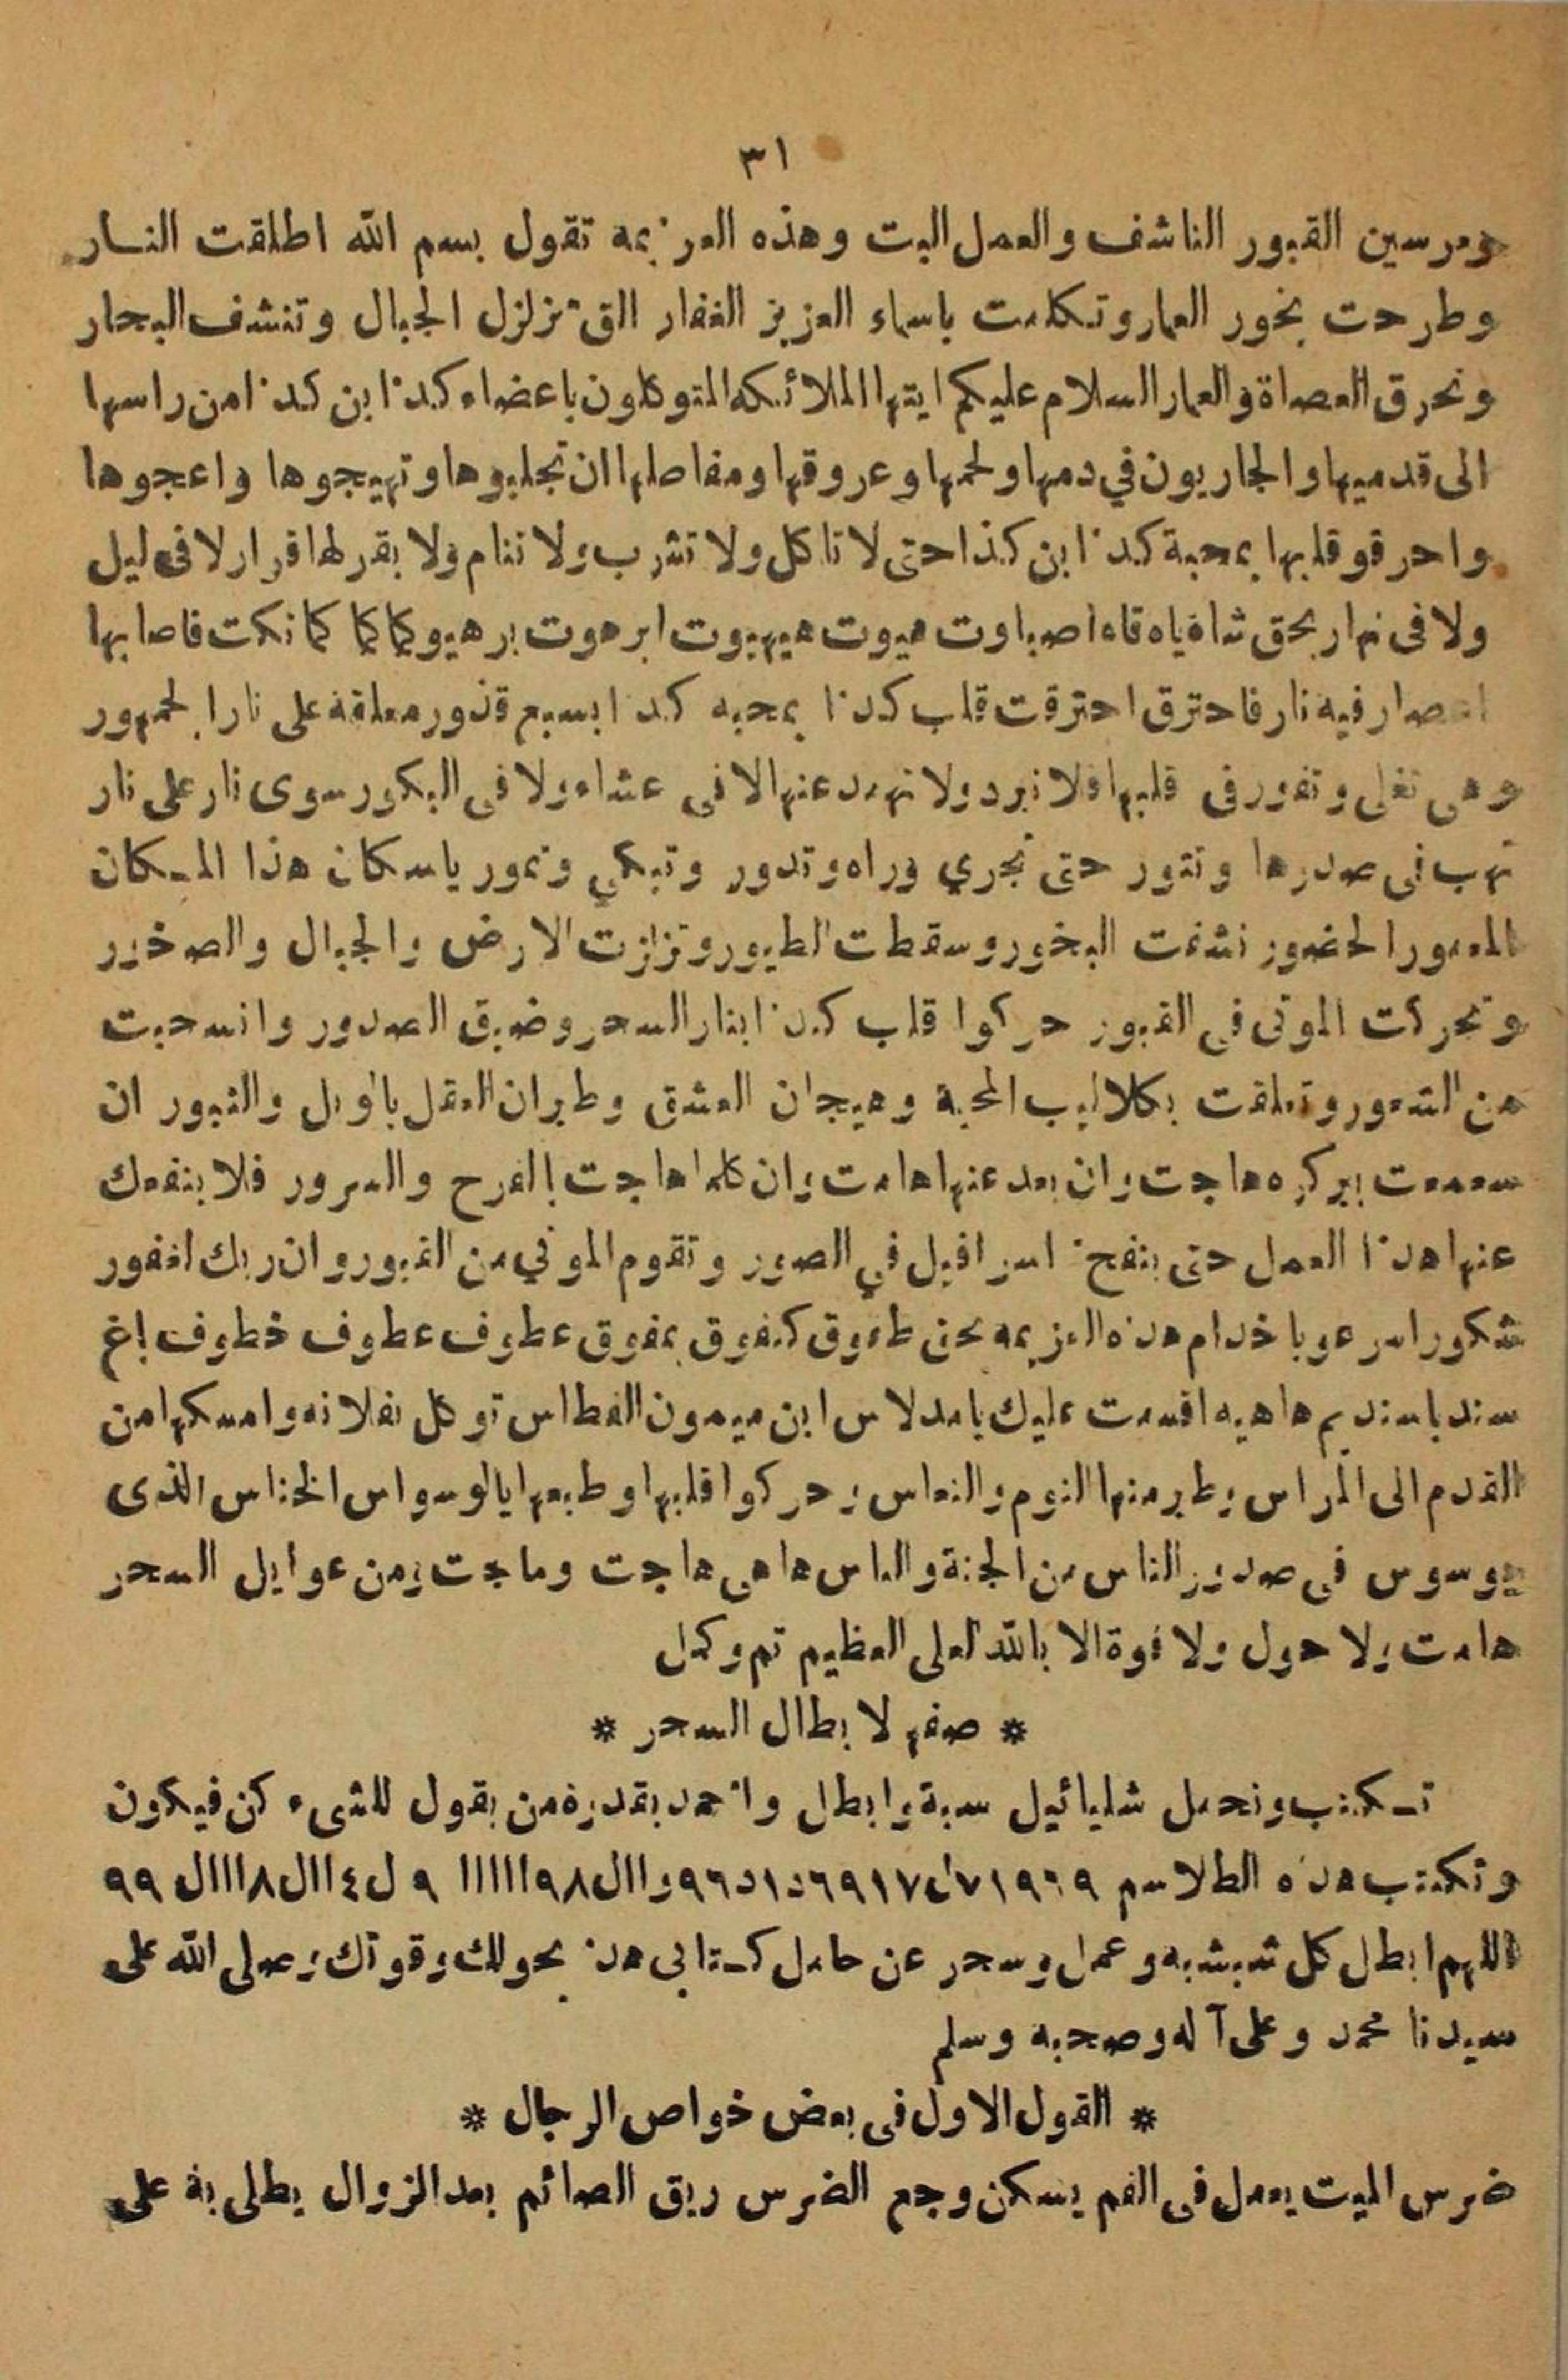 ٣١
ومرسين القبور الناشف والعمل البت وهذه العزيمه تقول بسم الله اطلقت النار
وطرحت بخور العمار وتكلمت باسماء العزيز الغفار التى تزلزل الجبال وتنشف البحار
وتحرق العصاة والعمار السلام عليكم ايتها الملائكه المتوكلون باعضاء كذا ابن كذا من راسها
الى قدميها والجاريون في دمها ولحمها وعروقها ومفاصلها ان تجلبوها وتهيجوها واعجوها
واحرقو قلبها بمحبة كذا ابن كذا حتى لا تاكل ولا تشرب ولا تنام ولا يقر لها قرار لا فى ليل
ولا فى نهار بحق شاه ياه قاه اصباوت هيوت هيهيوت ابرهوت برهيو كما كما كما نكت فاصابها
اعصار فيه نار فاحترق احترقت قلب كذا بمحبه كذا بسبع قدور معلقة على نار الجمهور
وهى تغلى وتفور فى قلبها فلا تبرد ولا تهمد عنها لا فى عشاء ولا فى البكور سوى نار على نار
تهب فى صدرها وتثور حتى تجري وراه وتدور وتبكي وتمور ياسكان هذا المكان
المعمور الحضور نشفت البخور وسقطت الطيور وتزلزت الارض والجبال والصخور
وتحركت الموتى فى القبور حركوا قلب كذا بنار السحر وضيق الصدور وانسحبت
من الشعور وتعلقت بكلاليب المحبة وهيجان العشق وطيران العقل بالويل والثبور ان
سمعت بذكره هاجت وان بعد عنها هامت وان كلمها هاجت بالفرح والسرور فلا ينفك
عنها هذا العمل حتى ينفخ اسرافيل في الصور وتقوم الموتي من القبور وان ربك لغفور
شكور اسرعو ياخدام هذه العزيمه بحق طموق كيفوق بمفوق عطوف عطوف خطوف
سند ياسنديم هاهيه اقسمت عليك يامدلاس ابن ميمون الغطاس توكل بفلانه وامسكها من
القدم الى الراس وطير منها النوم والنعاس وحركوا قلبها وطبعها يالوسواس الخناس الذى
يوسوس فى صدور الناس من الجنة والناس ها هى هاجت وماجت ومن عوايل السحر
هامت ولا حول ولا قوة الا بالله العلى العظيم تم وكمل
* صفه لابطال السحر *
تكتب وتحمل شليائيل سبة وابطل واخمد بقدرة من يقول للشىء كن فيكون
وتكتب هذه الطلاسم
اللهم ابطال كل شبشبه وعمل وسحر عن حامل كتابى هذ بحولك وقوتك وصلى الله على
سيدنا محمد وعلى آله وصحبه وسلم
* القول الاول فى بعض خواص الرجال *
ضرس الميت يعمل فى الفم يسكن وجع الضرس ريق الصائم بعد الزوال يطلى به على